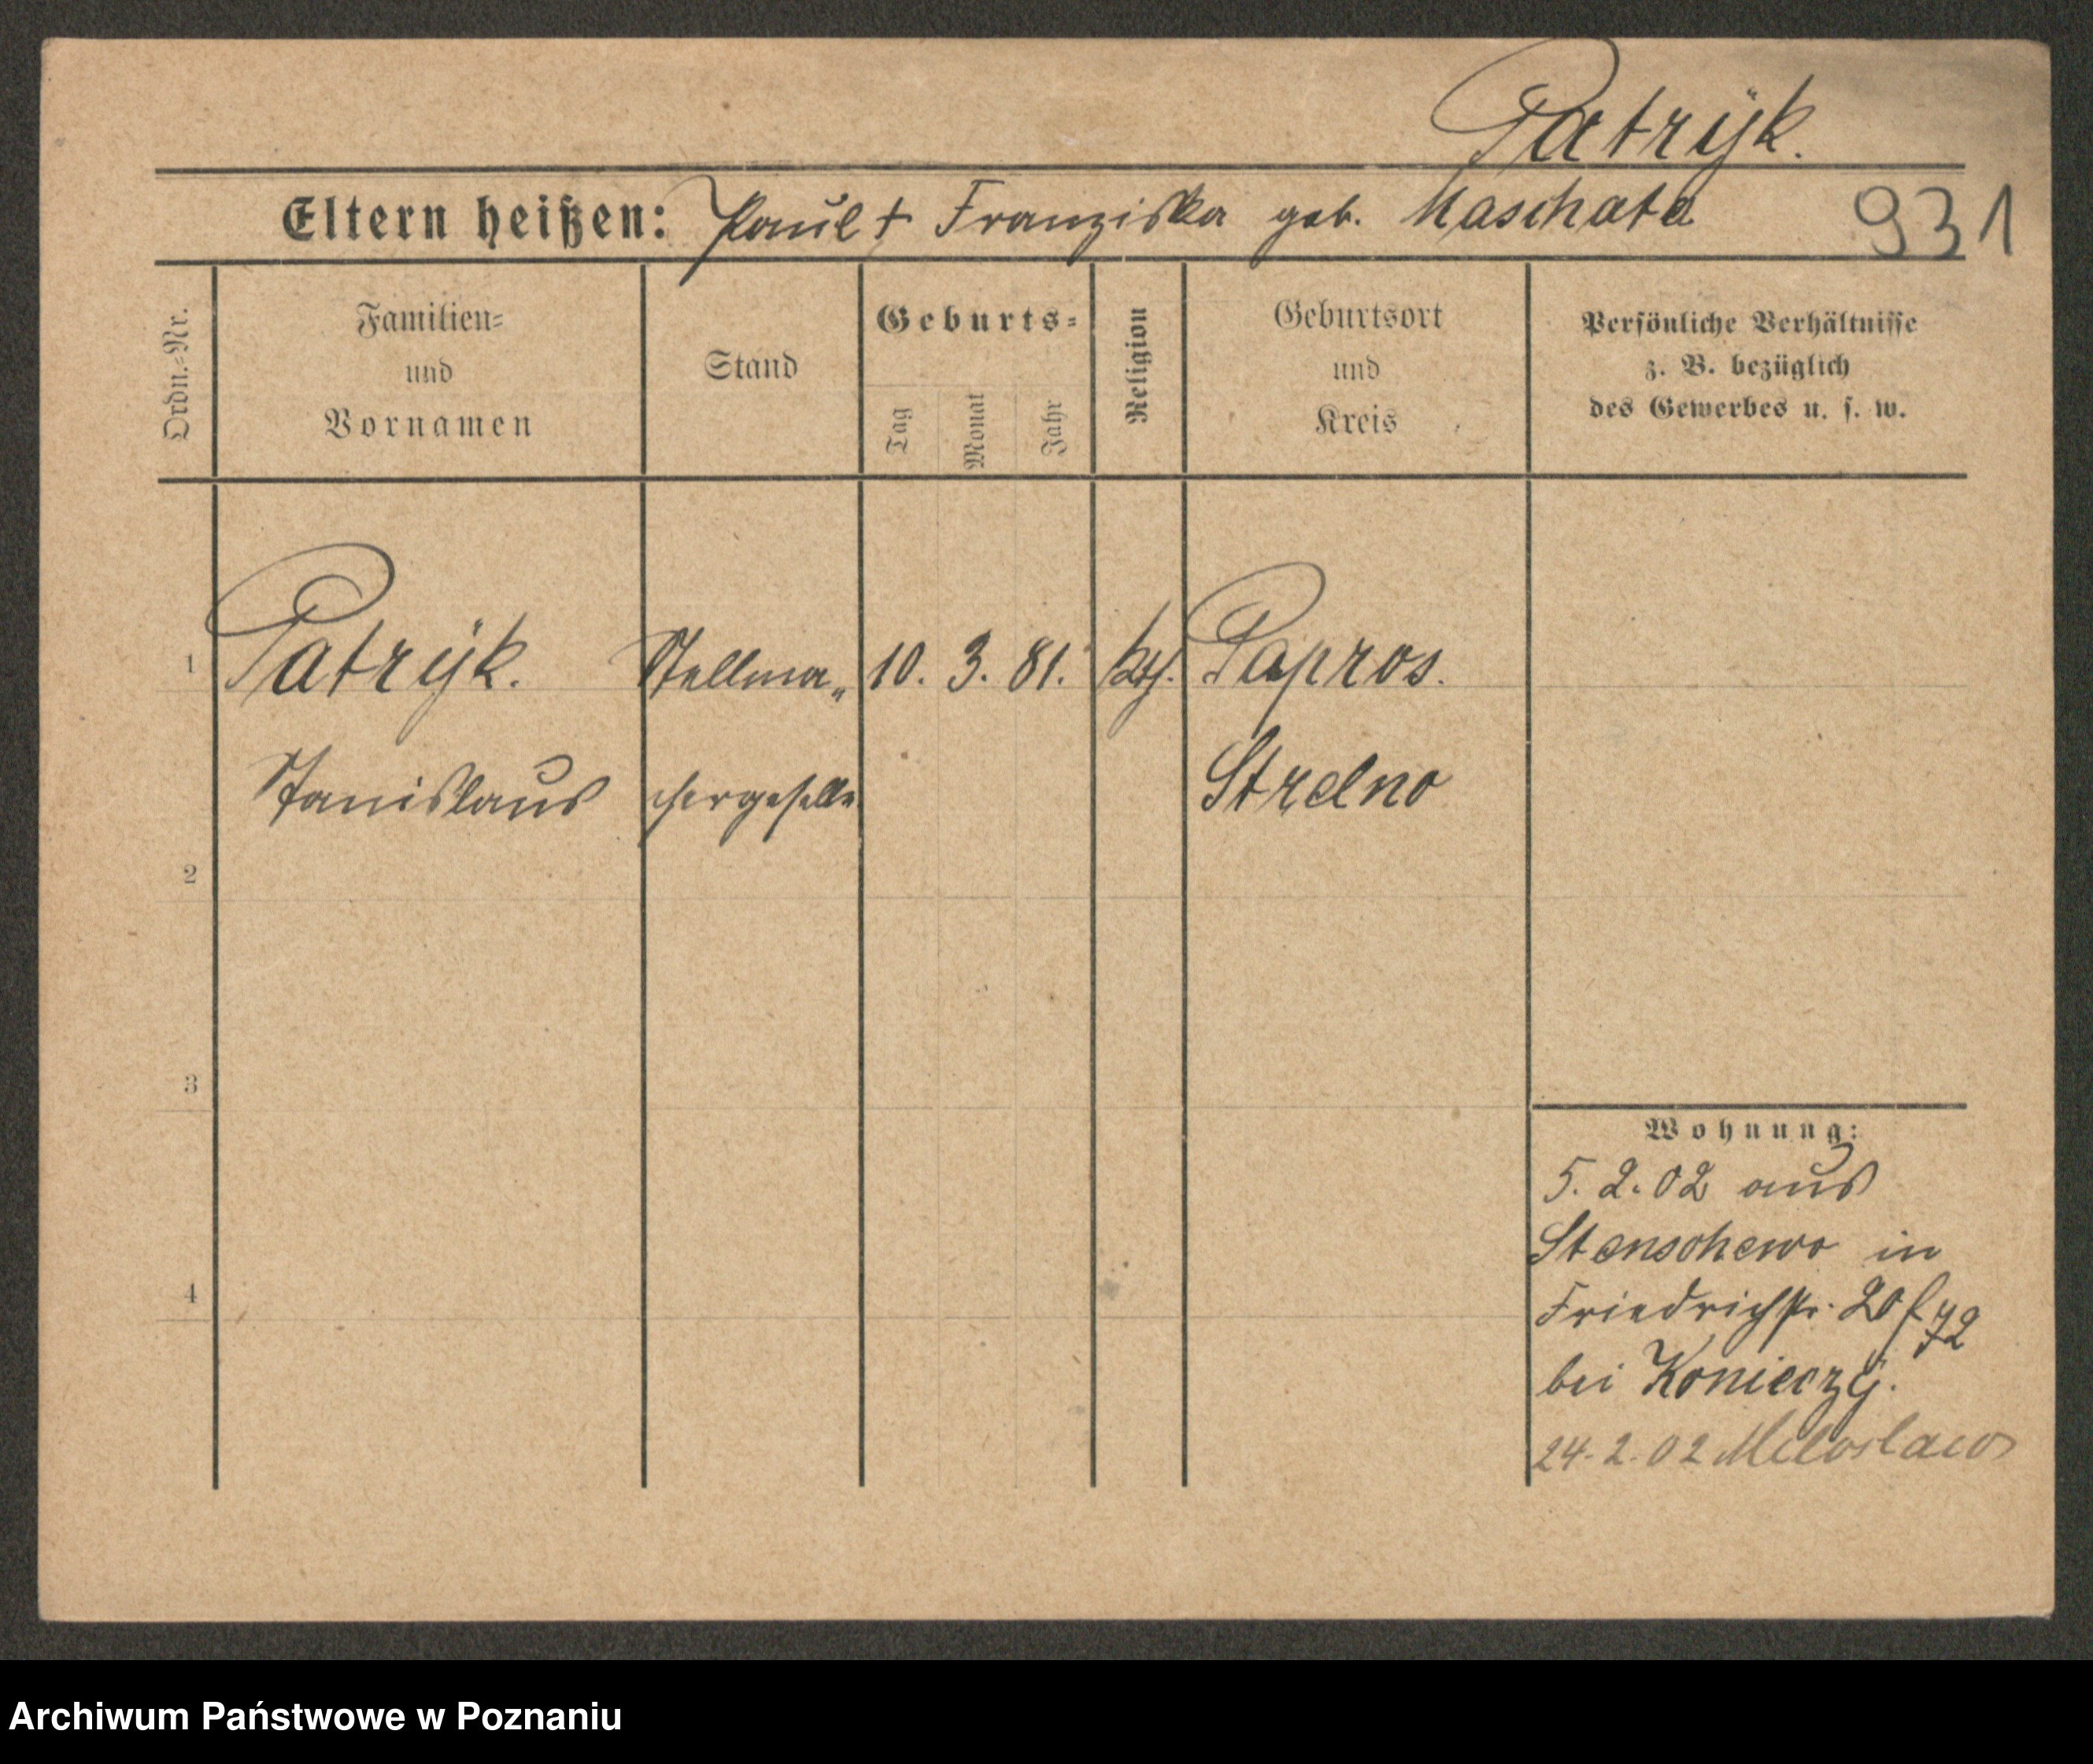 Patrÿk.
Eltern heißen: Paul † Franziska geb. Maschata
931
Ordn.-Nr.
Familien-
und
Vornamen
Stand
Geburts-
Tag
Monat
Jahr
Religion
Geburtsort
und
Kreis
Persönliche Verhältnisse
z. B. bezüglich
des Gewerbes u. s. w.
1 Patrÿk. Stellma„ 10. 3. 81. kth. Papros.
Stanislaus chergeselle Strelno
2
3
4
Wohnung:
5. 2. 02 aus
Stenschewo in
Friedrichstr. 20 f 72
bei Konieczÿ.
24. 2. 02 Miloslaw
Archiwum Państwowe w Poznaniu